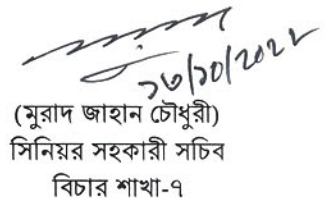 ১৩/১০/২০২২
(মুরাদ জাহান চৌধুরী)
সিনিয়র সহকারী সচিব
বিচার শাখা-৭